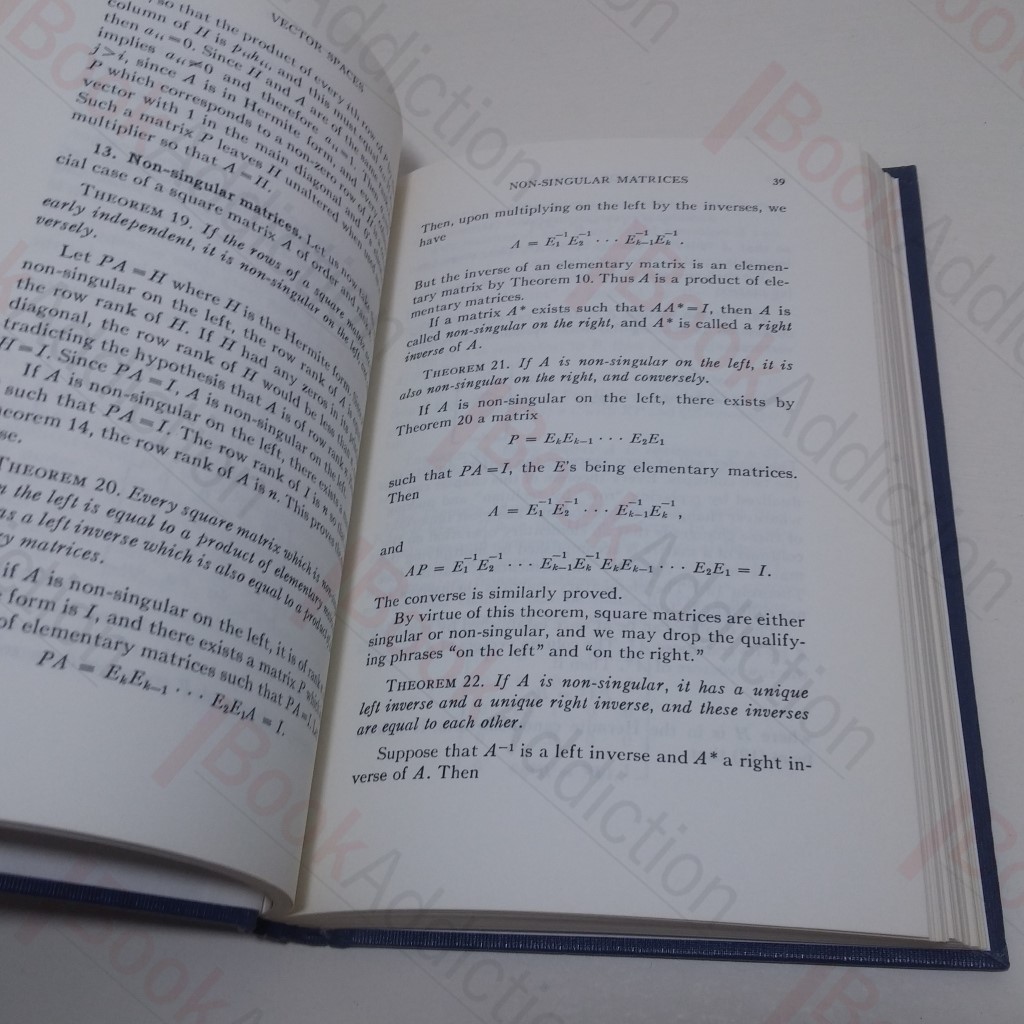 VECTOR SPACES
so that the product of every ith row of P
column of H is
and this must equal
then aᵢᵢ=0. Since H and A are of the same
implies aᵢᵢ≠0 and therefore aᵢᵢ=1. Then
j>i, since A is in Hermite form, and every
P which corresponds to a non-zero row of H is
vector with 1 in the main diagonal and 0's
Such a matrix P leaves H unaltered when used
multiplier so that A=H.
13. Non-singular matrices. Let us now
cial case of a square matrix A of order and rank
THEOREM 19. If the rows of a square matrix are
early independent, it is non-singular on the left,
versely.
Let PA=H where H is the Hermite form. Since
non-singular on the left, the row rank of A is
the row rank of H. If H had any zeros in its
diagonal, the row rank of H would be less than
tradicting the hypothesis that A is of row rank
H=I. Since PA=I, A is non-singular on the left.
If A is non-singular on the left, there exists
such that PA=I. The row rank of I is n so
eorem 14, the row rank of A is n. This proves the
se.
THEOREM 20. Every square matrix which is non-
n the left is equal to a product of elementary
as a left inverse which is also equal to a product
ry matrices.
if A is non-singular on the left, it is of rank
form is I, and there exists a matrix P which
of elementary matrices such that PA=I.
PA = EₖEₖ₋₁ · · · E₂E₁A = I.
NON-SINGULAR MATRICES 39
Then, upon multiplying on the left by the inverses, we
have
A = E₁⁻¹E₂⁻¹ · · · Eₖ₋₁⁻¹Eₖ⁻¹.
But the inverse of an elementary matrix is an elemen-
tary matrix by Theorem 10. Thus A is a product of ele-
mentary matrices.
If a matrix A* exists such that AA*=I, then A is
called non-singular on the right, and A* is called a right
inverse of A.
THEOREM 21. If A is non-singular on the left, it is
also non-singular on the right, and conversely.
If A is non-singular on the left, there exists by
Theorem 20 a matrix
P = EₖEₖ₋₁ · · · E₂E₁
such that PA=I, the E's being elementary matrices.
Then
A = E₁⁻¹E₂⁻¹ · · · Eₖ₋₁⁻¹Eₖ⁻¹,
and
AP = E₁⁻¹E₂⁻¹ · · · Eₖ₋₁⁻¹Eₖ⁻¹EₖEₖ₋₁ · · · E₂E₁ = I.
The converse is similarly proved.
By virtue of this theorem, square matrices are either
singular or non-singular, and we may drop the qualify-
ing phrases “on the left” and “on the right.”
THEOREM 22. If A is non-singular, it has a unique
left inverse and a unique right inverse, and these inverses
are equal to each other.
Suppose that A⁻¹ is a left inverse and A* a right in-
verse of A. Then
BookAddiction